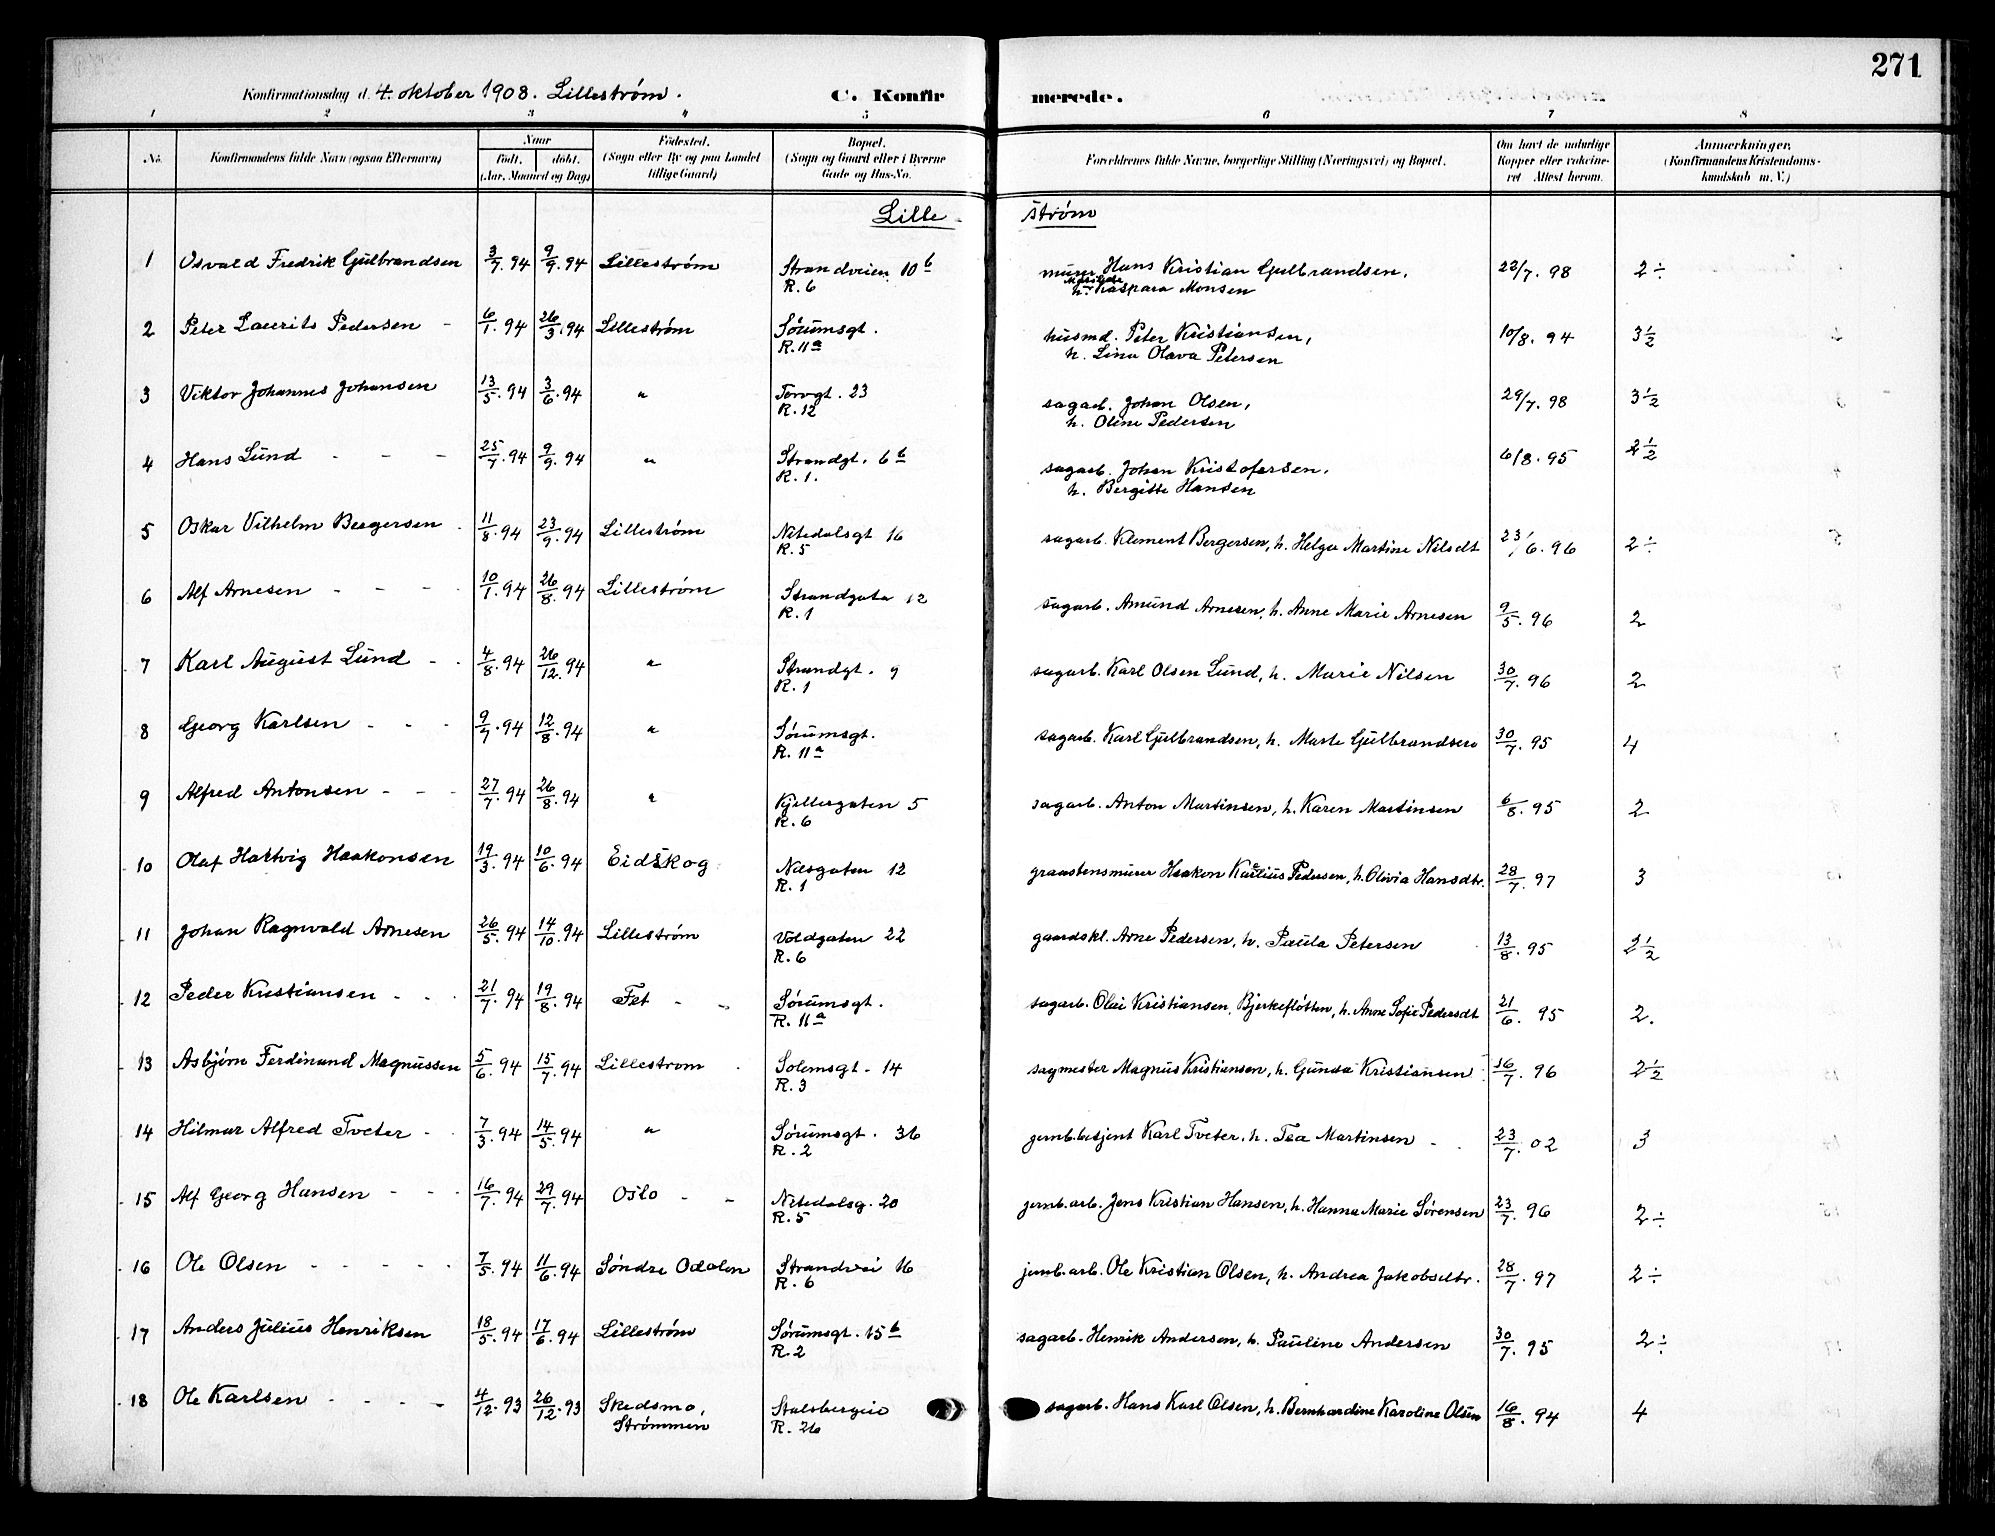 271
Konfirmationsdag d. 4. oktober 1908. Lillestrøm. C. Konfir merede.
1 2 3 4 5 6 7 8
No. Konfirmandens fulde Navn (ogsaa Efternavn) Naar født. døbt. (Aar, Maaned og Dag) Fødested. (Sogn eller By og paa Landet tillige Gaard) Bopæl. (Sogn og Gaard eller i Byerne Gade og Hus-No. Forældrenes fulde Navne, borgerlige Stilling (Næringsvei) og Bopæl. Om havt de naturlige Kopper eller vakcineret Attest herom. Anmerkninger. (Konfirmandens Kristendomskundskab m. V.)
Lille- strøm
1 Osvald Fredrik Gulbrandsen 3/7. 94 9/9. 94 Lillestrøm Strandveien 10 b R. 6 murer Hans Kristian Gulbrandsen, h. Kaspara Monsen 22/7. 98 2 ÷
2 Peter Laurits Pedersen - 6/1. 94 26/3. 94 Lillestrøm Sørumsgt. R. 11 a husmd. Peter Kristiansen, h. Lina Olava Petersen 10/8. 94 3 1/2
3 Viktor Johannes Johansen 13/5. 94 3/6. 94 " Torvgt. 23 R. 12 sagarb. Johan Olsen, h. Oline Pedersen 29/7. 98 3 1/2
4 Hans Lund - - - 25/7. 94 9/9. 94 " Strandgt. 6 b R. 1. sagarb. Johan Kristofersen. h. Bergitte Hansen 6/8. 95 2 1/2
5 Oskar Vilhelm Bergersen 11/8. 94 23/9. 94 Lillestrøm Nitedalsgt 16 R. 5 sagarb. Klement Bergersen, h. Helga Martine Nilsdt 23/6. 96 2 ÷
6 Alf Arnesen - - - 10/1. 94 26/8. 94 Lillestrøm Strandgata 12 R. 1 sagarb. Amund Arnesen, h. Anne Marie Arnesen 9/5. 96 2
7 Karl August Lund - - 4/8. 94 26/12. 94 " Strandgt. 9 R. 1 sagarb. Karl Olsen Lund, h. Marie Nilsen 30/7. 96 2
8 Georg Karlsen - - - 9/7. 94 12/8. 94 " Sørumsgt. R. 11 a sagarb. Karl Gulbrandsen, h. Marte Gulbrandsen 30/7. 95 4
9 Alfred Antonsen - - - 27/7. 94 26/8. 94 " Kjellergaten 5 R. 6 sagarb. Anton Martinsen, h. Karen Martinsen 6/8. 95 2
10 Olaf Hartvig Haakonsen 19/3. 94 10/6. 94 Eidskog Næsgaten 12 R. 1 graastensmurer Haakon Karlius Pedersen, h. Olivia Hansdtr. 28/7. 97 3
11 Johan Ragnvald Arnesen 26/5. 94 14/10. 94 Lillestrøm Voldgaten 22 R. 6 gaardskl. Arne Pedersen, h. Paula Petersen 13/8. 95 2 1/2
12 Peder Kristiansen - - - 21/7. 94 19/8. 94 Fet - - Sørumsgt. R. 11 a sagarb. Olai Kristiansen, Bjerkefløtten, h. Anne Sofie Pedersdt 21/6. 95 2.
13 Asbjørn Ferdinand Magnussen 5/6. 94 15/7. 94 Lillestrøm Solemsgt. 14 R. 3 sagmester Magnus Kristiansen, h. Gunda Kristiansen 16/7. 96 2 1/2
14 Hilmar Alfred Tveter - - 7/3. 94 14/5. 94 " Sørumsgt. 36 R. 2 jernb.betjent Karl Tveter, h. Tea Martinsen - - 23/7. 02 3
15 Alf Georg Hansen - - - 16/7. 94 29/7. 94 Oslo - - Nitedalsg. 20 R. 5 jernb.arb. Jens Kristian Hansen, h. Hanna Marie Sørensen 23/7. 96 2 ÷
16 Ole Olsen - - - - - 7/5. 94 11/6. 94 Søndre Odalen Strandvei 16 R. 6 jernb.arb. Ole Kristian Olsen, h. Andrea Jakobsdtr. 28/7. 97 2 ÷
17 Anders Julius Henriksen 18/5. 94 17/6. 94 Lillestrøm Sørumsgt. 15 b R. 2 sagarb. Henrik Andersen, h. Pauline Andersen 30/7. 95 2 ÷
18 Ole Karlsen - - - - 4/12. 93 26/12. 93 Skedsmo, Strømmen Stalsbergvie R. 26 sagarb. Hans Karl Olsen, h. Bernhardine Karoline Olsen 16/8. 94 4